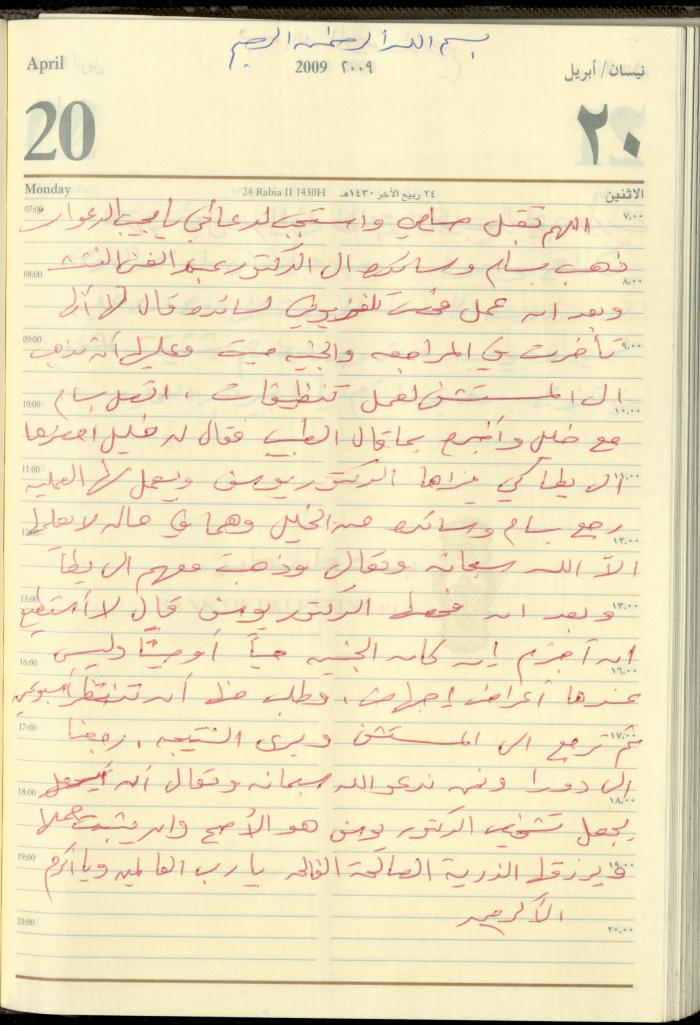 بسم الله الرحمن الرحيم
April 2009 ٢٠٠٩ نيسان/أبريل
20 ٢٠
Monday 24 Rabia II 1430H ٢٤ ربيع الآخر ١٤٣٠هـ الاثنين
07:00 ٧,٠٠
اللهم تقبل صلاتي واستجب لدعائي يا مجيب الدعوات
ذهب بسام و الى الدكتور عبد
08:00 ٨,٠٠
وبعد ان عمل فحص تلفزيوني قال لها أنها
09:00 ٩,٠٠
تأخرت في المراجعه والجنين ميت وعليها أن تذهب
الى المستشفى لعمل تنظيفات ، اتصل بسام
10:00 ١٠,٠٠
مع خليل وأخبره بما قال الطبيب فقال له خليل احضرها
11:00 ١١,٠٠
الى يطا كي يراها الدكتور يوسف ويعمل لها العمليه
رجع بسام و من الخليل وهما في حاله لا يعلمها
12:00 ١٢,٠٠
الا الله سبحانه وتعالى وذهبت معهم الى يطا
13:00 ١٣,٠٠
وبعد ان فحصها الدكتور يوسف قال لا أستطيع
ان أجزم إن كان الجنين حياً أو ميتاً وليس
16:00 ١٦,٠٠
عندها أعراض إجهاض ، وطلب منها أن تنتظر أسبوعين
17:00 ١٧,٠٠
ثم ترجع الى المستشفى ويرى النتيجه . رجعنا
الى دورا ونحن ندعو الله سبحانه وتعالى أن
18:00 ١٨,٠٠
يجعل تشخيص الدكتور يوسف هو الأصح وان يثبت حملها
19:00 ١٩,٠٠
ويرزقها الذرية الصالحة يا رب العالمين ويا أكرم
الأكرمين
20:00 ٢٠,٠٠